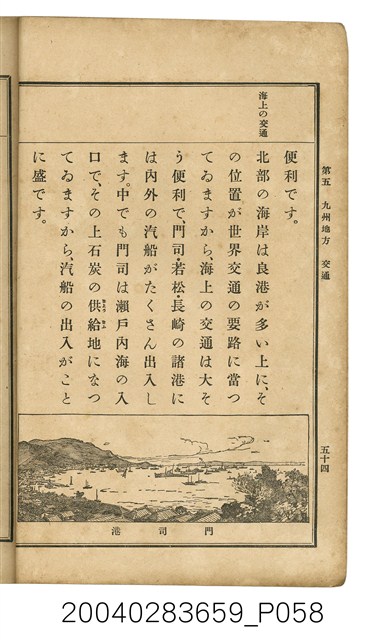 第五 九州地方 交通
五十四
海上の交通
便利です。
北部の海岸は良港が多い上に、そ
の位置が世界交通の要路に當つ
てゐますから、海上の交通は大そ
う便利で、門司・若松・長崎の諸港に
は内外の汽船がたくさん出入し
ます。中でも門司は瀬戸内海の入
口で、その上石炭の供給地になつ
てゐますから、汽船の出入がこと
に盛です。
門司港
20040283659_P058